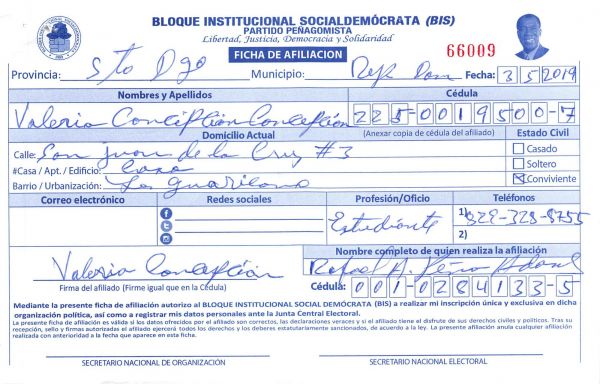 BLOQUE INSTITUCIONAL SOCIALDEMÓCRATA (BIS)
PARTIDO PEÑAGOMISTA
Libertad, Justicia, Democracia y Solidaridad
FICHA DE AFILIACION
66009
Provincia: Sto Dgo Municipio: Rep Dom Fecha: 3/5/2019
Nombres y Apellidos Cédula
Valeria Concepción Concepción 225-0019500-7
Domicilio Actual (Anexar copia de cédula del afiliado) Estado Civil
Calle: San Juan de la Cruz #3 Casado
#Casa / Apt. / Edificio: Casa Soltero
Barrio / Urbanización: Los Conviviente
Correo electrónico Redes sociales Profesión/Oficio Teléfonos
Estudiante 1) 829-328-8755
2)
Nombre completo de quien realiza la afiliación
Valeria Concepción Rafael A. Peña
Firma del afiliado (Firme igual que en la Cédula) Cédula: 001-0284133-5
Mediante la presente ficha de afiliación autorizo al BLOQUE INSTITUCIONAL SOCIAL DEMÓCRATA (BIS) a realizar mi inscripción única y exclusiva en dicha
organización política, así como a registrar mis datos personales ante la Junta Central Electoral.
La presente ficha de afiliación es válida si los datos ofrecidos por el afiliado son correctos, las declaraciones veraces y si el afiliado tiene el disfrute de sus derechos civiles y políticos. Tras su
recepción, sello y firmas autorizadas el afiliado ejercerá todos los derechos y los deberes estatutariamente sancionados, de acuerdo a la ley. La presente afiliación anula cualquier afiliación
realizada con anterioridad a la fecha que aparece en esta ficha.
SECRETARIO NACIONAL DE ORGANIZACIÓN SECRETARIO NACIONAL ELECTORAL